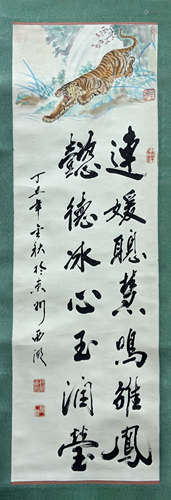 連媛聰慧鳴雛鳳
懿德冰心玉潤瑩
丁丑年金秋於州西湖